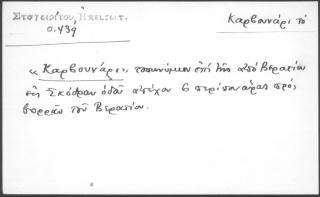 Στουγιρίτου, Ἠπειρωτ.
σ. 439
Καρβουνάρι τό
« Καρβουνάρι», τοπωνύμιον ἐπὶ τῆς ἀπὸ Βερατίου
εἰς Σκόδραν ὁδοῦ ἀπέχον 6 περίπου ὥρας πρὸς
βορρᾶν τοῦ Βερατίου.